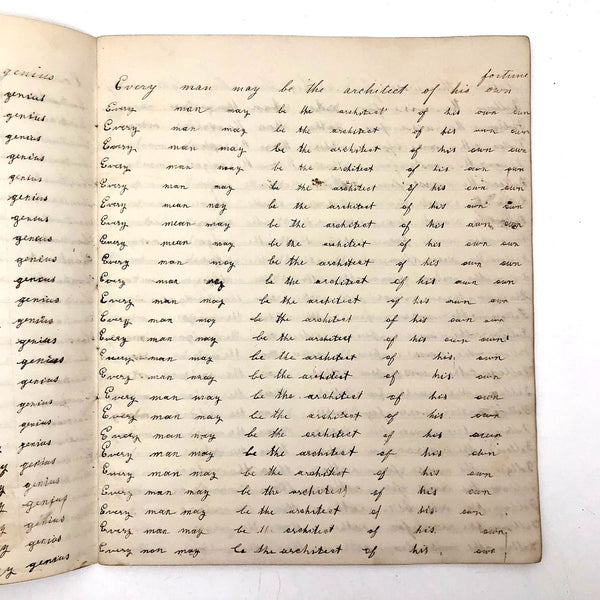 genius
genius
genius
genius
genius
genius
genius
genius
genius
genius
genius
genius
genius
genius
genius
genius
genius
genius
genius
y genius
y genius
y genius
y genius
y genius
y genius
fortune
Every man may be the architect of his own
Every man may be the architect of his own own
Every man may be the architect of his own own
Every man may be the architect of his own own
Every man may be the architect of his own own
Every man may be the architect of his own own
Every man may be the architect of his own own
Every mean may be the architect of his own own
Every mean may be the architect of his own own
Every man may be the architect of his own own
Every man may be the architect of his own own
Every man may be the architect of his own own
Every man may be the architect of his own own
Every man may be the architect of his own own
Every man may be the architect of his own
Every man may be the architect of his own
Every man may be the architect of his own
Every man may be the architect of his own
Every man may be the architect of his own
Every man may be the architect of his own
Every man may be the architect of his own
Every man may be the architect of his own
Every man may be the architect of his own
Every man may be th architect of his own
Every man may be the architect of his own